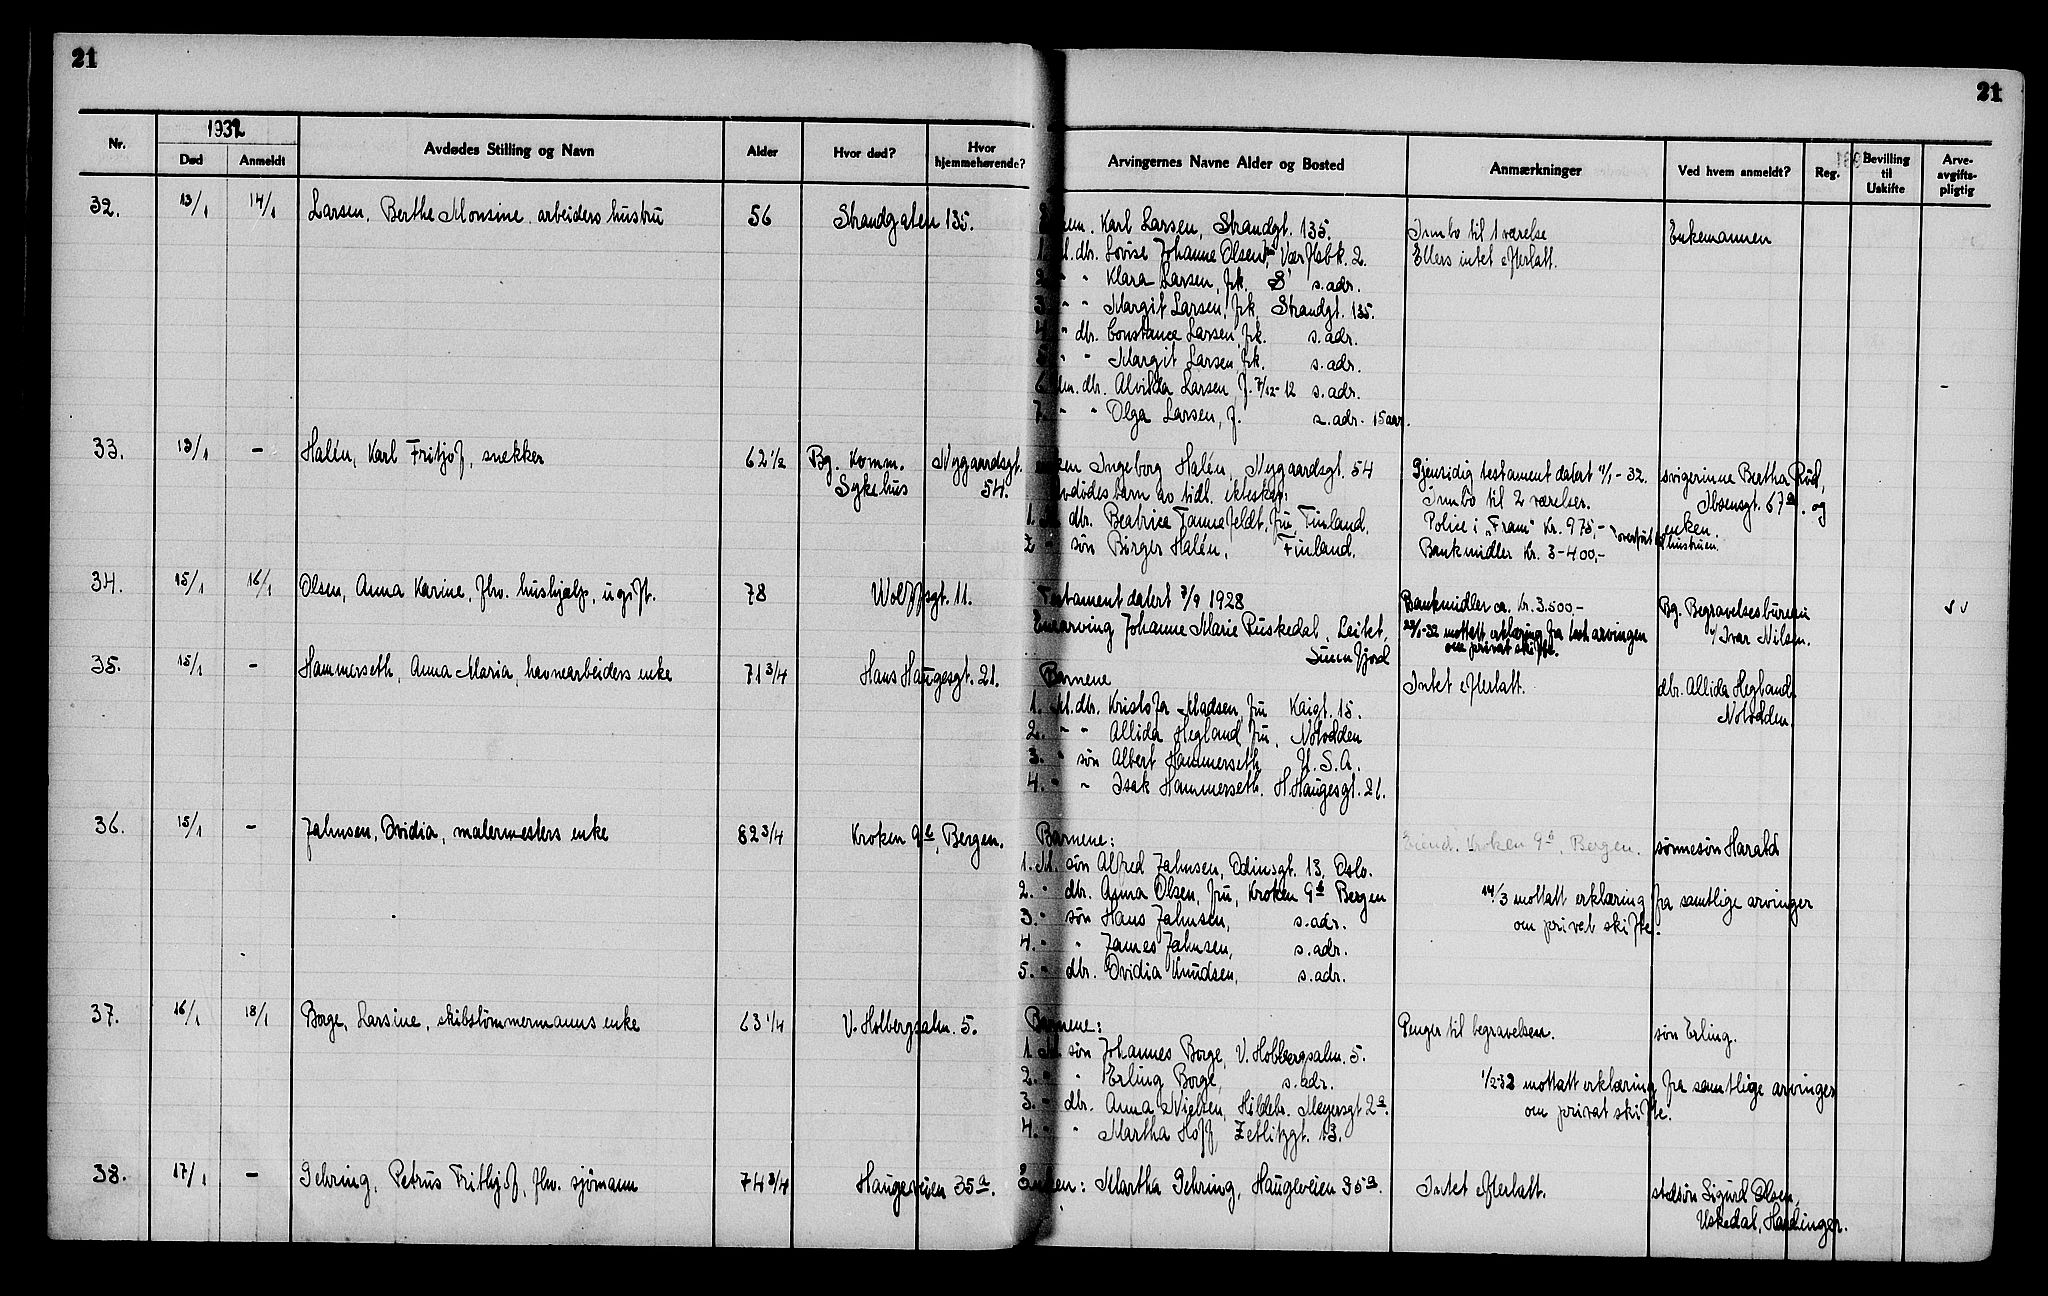 21
21
Nr.
1932
Død
Anmeldt
Avdødes Stilling og Navn
Alder
Hvor død?
Hvor hjemmehørende?
Arvingernes Navne Alder og Bosted
Anmærkninger
Ved hvem anmeldt?
Reg.
Bevilling til Uskifte
Arve-avgifts-pligtig
32. 13/1 14/1 Larsen, Berthe Monsine, arbeiders hustru 56 Strandgaten 135.
Karl Larsen, Strandgt. 135.
dbr. Lovise Johanne Olsen, 2.
" " Klara Larsen, frk. s. adr.
3. " " Margit Larsen, frk. Strandgt. 135.
4. " dbr. Constance Larsen, frk. s. adr.
" " Margit Larsen, frk. s. adr.
6. dbr. Alvilda Larsen, f. 7/12-12 s. adr.
7. " " Olga Larsen, f. s. adr. 15 aar.
Innbo til 1 værelse
Ellers intet efterlatt.
Enkemannen
33. 13/1 - Halén, Karl Fritjof, snekker 62 1/2 Bg. Komm. Sykehus
Nygaardsgt. 54.
Enken Ingeborg Halén, Nygaardsgt. 54
Avdødes barn av tidl. ekteskap:
1. dbr. Beatrice Tannefeldt, fru, Finland.
2 " søn Birger Halén, Finland.
Gjensidig testament datert 4/1-32.
Innbo til 2 værelser.
Police i "Fram" Kr. 975,-
Bankmidler Kr. 3-400,-
overført til hustruen.
svigerinne Bertha Rød,
Ibsensgt. 67a. og
enken.
34. 15/1 16/1 Olsen, Anna Karine, fhv. hushjælp, ugift. 78 Wolffsgt. 11.
Testament datert 7/9 1928
Enearving Johanne Marie Ruskedal, Leitet,
Sunnfjord
Bankmidler ca. Kr. 3.500,-
-32 mottatt erklæring fra test. arvingen
om privat skifte.
Bg. Begravelsesbureau
v/ Ivar Nilsen.
35. 15/1 - Hammerseth, Anna Maria, havnearbeiders enke 71 3/4 Hans Haugesgt. 21.
Barnene
1. M. dbr. Kristofa Madsen, fru Kaigt. 15.
2. " " Allida Hegland, fru, Notodden
3. " søn Albert Hammerseth U.S.A.
4. " " Isak Hammerseth. H. Haugesgt. 21.
Intet efterlatt.
dbr. Allida Hegland,
Notodden.
36. 15/1 - Jahnsen, Ovidia, malermesters enke 82 3/4 Kroken 9b, Bergen.
Barnene:
1. M. søn Alfred Jahnsen, Odinsgt. 13, Oslo.
2. " dbr. Anna Olsen, fru, Kroken 9b Bergen
3. " søn Hans Jahnsen, s. adr.
4. " " James Jahnsen, s. adr.
5. " dbr. Ovidia Knudsen, s. adr.
Eiend. Kroken 9b, Bergen.
14/3 mottatt erklæring fra samtlige arvinger
om privat skifte.
sønnesøn Harald
37. 16/1 18/1 Borge, Larsine, skibstømmermanns enke 63 1/4 V. Holbergsalm. 5.
Barnene:
1. M. søn Johannes Borge, V. Holbergsalm. 5.
2. " " Erling Borge, s. adr.
3. " dbr. Anna Nielsen, Hildebr. Meyersgt 2a.
4. " " Martha Hoff, Zetlitzgt. 13.
Penger til begravelsen.
1/2-32 mottatt erklæring fra samtlige arvinger
om privat skifte.
søn Erling.
38. 17/1 - Gehring, Petrus Frithjof, fhv. sjømann 74 3/4 Haugeveien 35a.
Enken: Martha Gehring, Haugeveien 35a.
Intet efterlatt.
stedsøn Sigurd Olsen,
Uskedal, Hardanger.